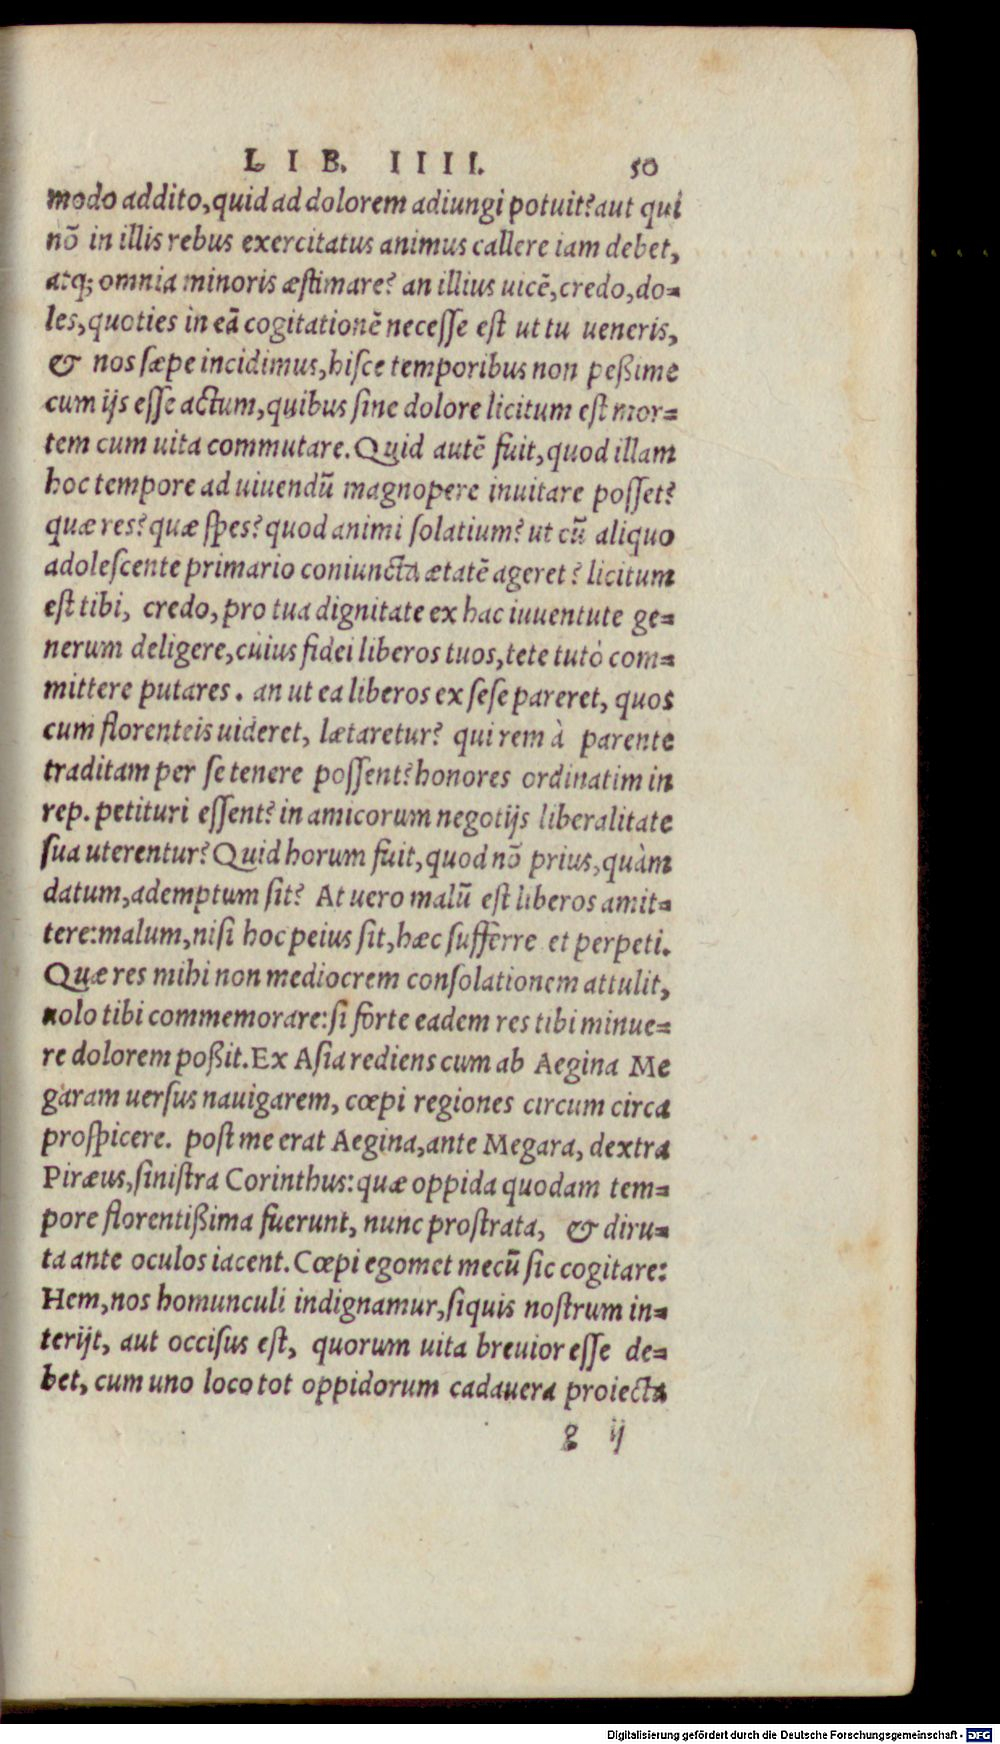 LIB. IIII. 50
modo addito, quid ad dolorem adiungi potuit? aut qui
nō in illis rebus exercitatus animus callere iam debet,
atq; omnia minoris æstimare? an illius uicē, credo, do=
les, quoties in eā cogitationē necesse est ut tu ueneris,
& nos sæpe incidimus, hisce temporibus non peßime
cum ijs esse actum, quibus sine dolore licitum est mor=
tem cum uita commutare. Quid autē fuit, quod illam
hoc tempore ad uiuendū magnopere inuitare posset?
quæ res? quæ spes? quod animi solatium? ut cū aliquo
adolescente primario coniuncta ætatē ageret? licitum
est tibi, credo, pro tua dignitate ex hac iuuentute ge=
nerum deligere, cuius fidei liberos tuos, te te tutò com=
mittere putares. an ut ea liberos ex sese pareret, quos
cum florenteis uideret, lætaretur? qui rem à parente
traditam per se tenere possent? honores ordinatim in
rep. petituri essent? in amicorum negotijs liberalitate
sua uterentur? Quid horum fuit, quod nō prius, quàm
datum, ademptum sit? At uero malū est liberos amit=
tere: malum, nisi hoc peius sit, hæc sufferre et perpeti.
Quæ res mihi non mediocrem consolationem attulit,
uolo tibi commemorare: si forte eadem res tibi minue=
re dolorem poßit. Ex Asia rediens cum ab Aegina Me
garam uersus nauigarem, cœpi regiones circum circa
prospicere. post me erat Aegina, ante Megara, dextra
Piræus, sinistra Corinthus: quæ oppida quodam tem=
pore florentißima fuerunt, nunc prostrata, & diru=
ta ante oculos iacent. Cœpi egomet mecū sic cogitare:
Hem, nos homunculi indignamur, siquis nostrum in=
terijt, aut occisus est, quorum uita breuior esse de=
bet, cum uno loco tot oppidorum cadauera proiecta
g ij
Digitalisierung gefördert durch die Deutsche Forschungsgemeinschaft - DFG